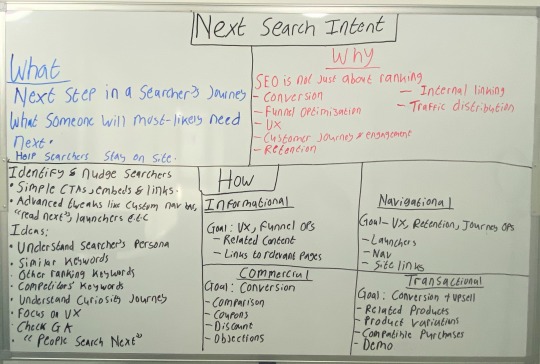 Next Search Intent
What
Next Step in a Searcher's Journey
What Someone will most-likely need
Next.
Help Searchers Stay on Site.
Why
SEO is not just about ranking
- Conversion
- Funnel Optimisation
- UX
- Customer Journey & engagement
- Retention
- Internal linking
- Traffic distribution
How
Identify & Nudge Searchers
• Simple CTAs, embeds & links.
• Advanced tweaks like Custom nav tabs,
"read next", launchers etc
Ideas;
• Understand Searcher's Persona
• Similar Keywords
• Other ranking Keywords
• Competitors' Keywords
• Understand Curiosity Journey
• Focus on UX
• Check GA
• "People Search Next"
Informational
Goal: UX, Funnel OPs
- Related Content
- Links to relevant Pages
Navigational
Goal - UX, Retention, Journey OPs
- Launchers
- Nav
- Site links
Commercial
Goal: Conversion
- Comparison
- Coupons
- Discount
- Objections
Transactional
Goal: Conversion + upsell
- Related Products
- Product Variations
- Compatible Purchases
- Demo